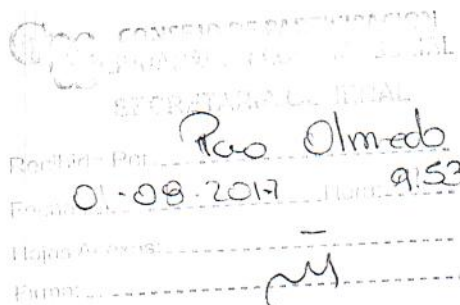 CONSEJO DE PARTICIPACION
SOCIAL
SECRETARIA GENERAL
Recibido Por: Olmedo
Fecha: 01-08-2017 Hora: 9:53
Hojas Anexas: -
Firma: